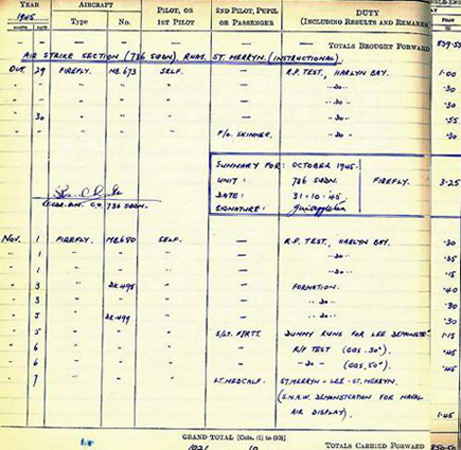 YEAR AIRCRAFT PILOT, OR 1ST PILOT 2ND PILOT, PUPIL OR PASSENGER DUTY (INCLUDING RESULTS AND REMARKS
1945 Type No.
— — — — — TOTALS BROUGHT FORWARD 839.55
AIR STRIKE SECTION (736 SQDN), RNAS, ST. MERRYN. (INSTRUCTIONAL).
OCT. 29 FIREFLY. MB.673 SELF. — R.P. TEST, HARLYN BAY. 1.00
" " " " " — —DO— .30
" " " " " — —DO— .30
" 30 " " " — —DO— .55
" " " " " F/O. SKINNER. —DO— .30
SUMMARY FOR: OCTOBER 1945.
UNIT: 736 SQDN. FIREFLY. 3.25
DATE: 31.10.45.
SIGNATURE:
C.O. 736 SQDN.
NOV. 1 FIREFLY. MB.680 SELF. — R.P. TEST, HARLYN BAY. .30
" 1 " " " — —DO—
" 1 " " " — —DO— .15
" 3 " DK.495 " — FORMATION. .40
" 3 " " " — —DO— .30
" 5 " DK.499 " — —DO— .30
" 5 " " " S/LT. DUMMY RUNS FOR LEE 1.15
" 6 " " " — R/P TEST (GGS. 30°). .45
" 6 " " " — —DO— (GGS. 50°). .45
" 7 " " " LT. MEDCALF. ST. MERRYN – LEE – ST. MERRYN.
DEMONSTRATION FOR NAVAL
AIR DISPLAY). 1.45
GRAND TOTAL [Cols. (1) to (10)]
TOTALS CARRIED FORWARD 850.50